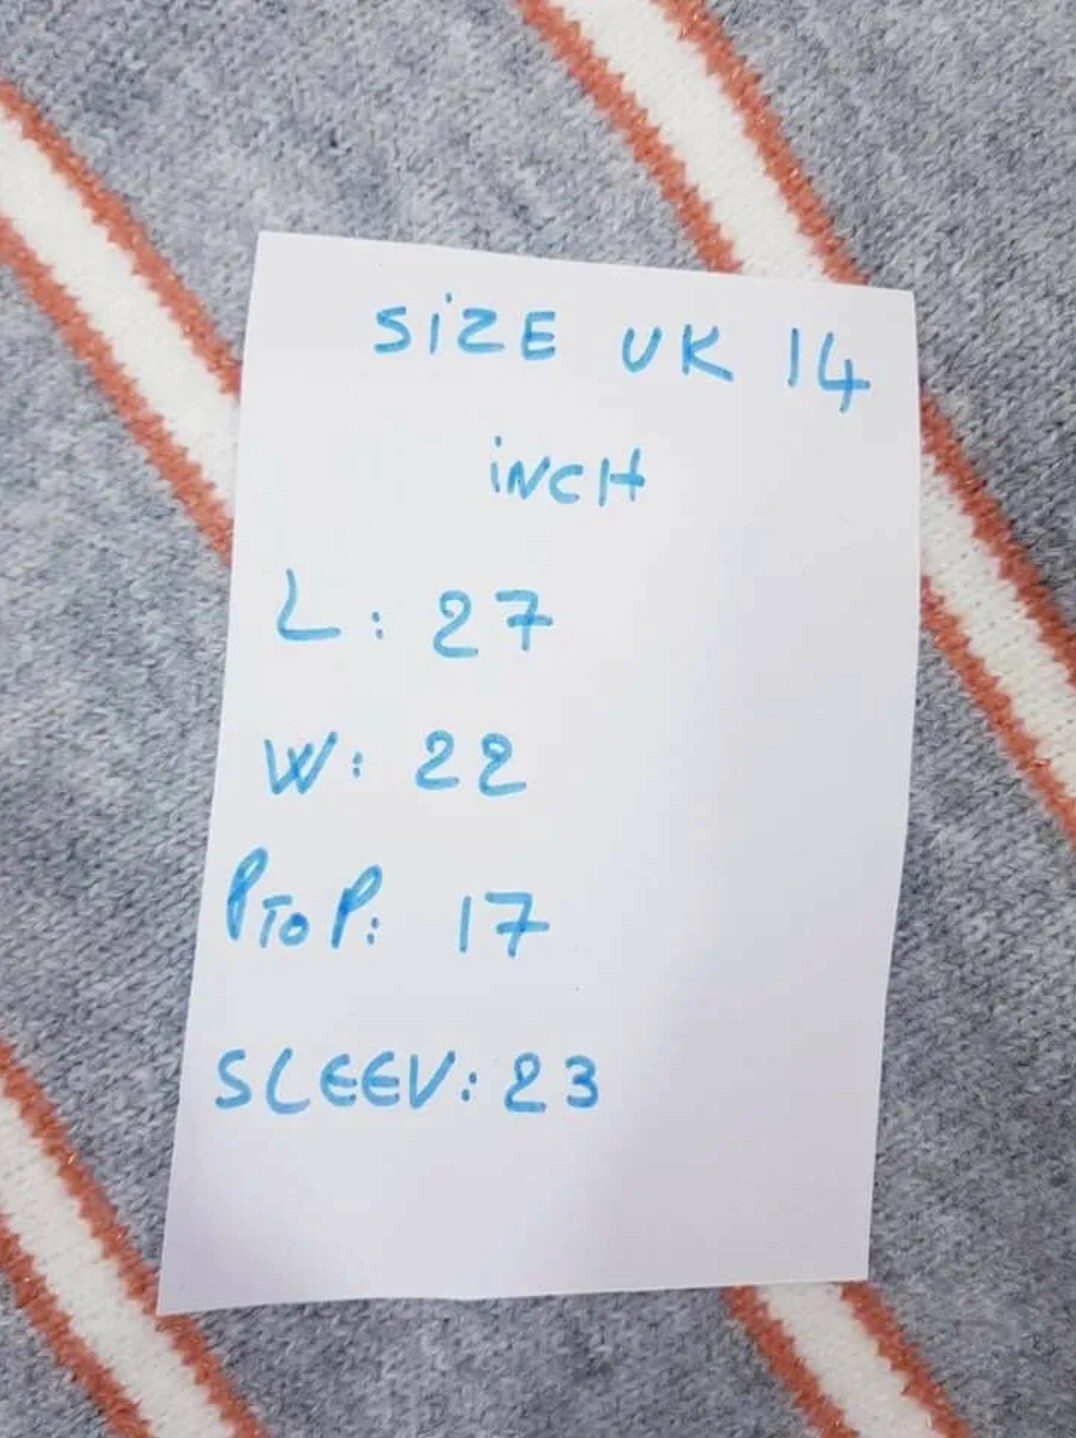 SiZE UK 14
iNCH
L: 27
W: 22
PToP: 17
SLEEV: 23